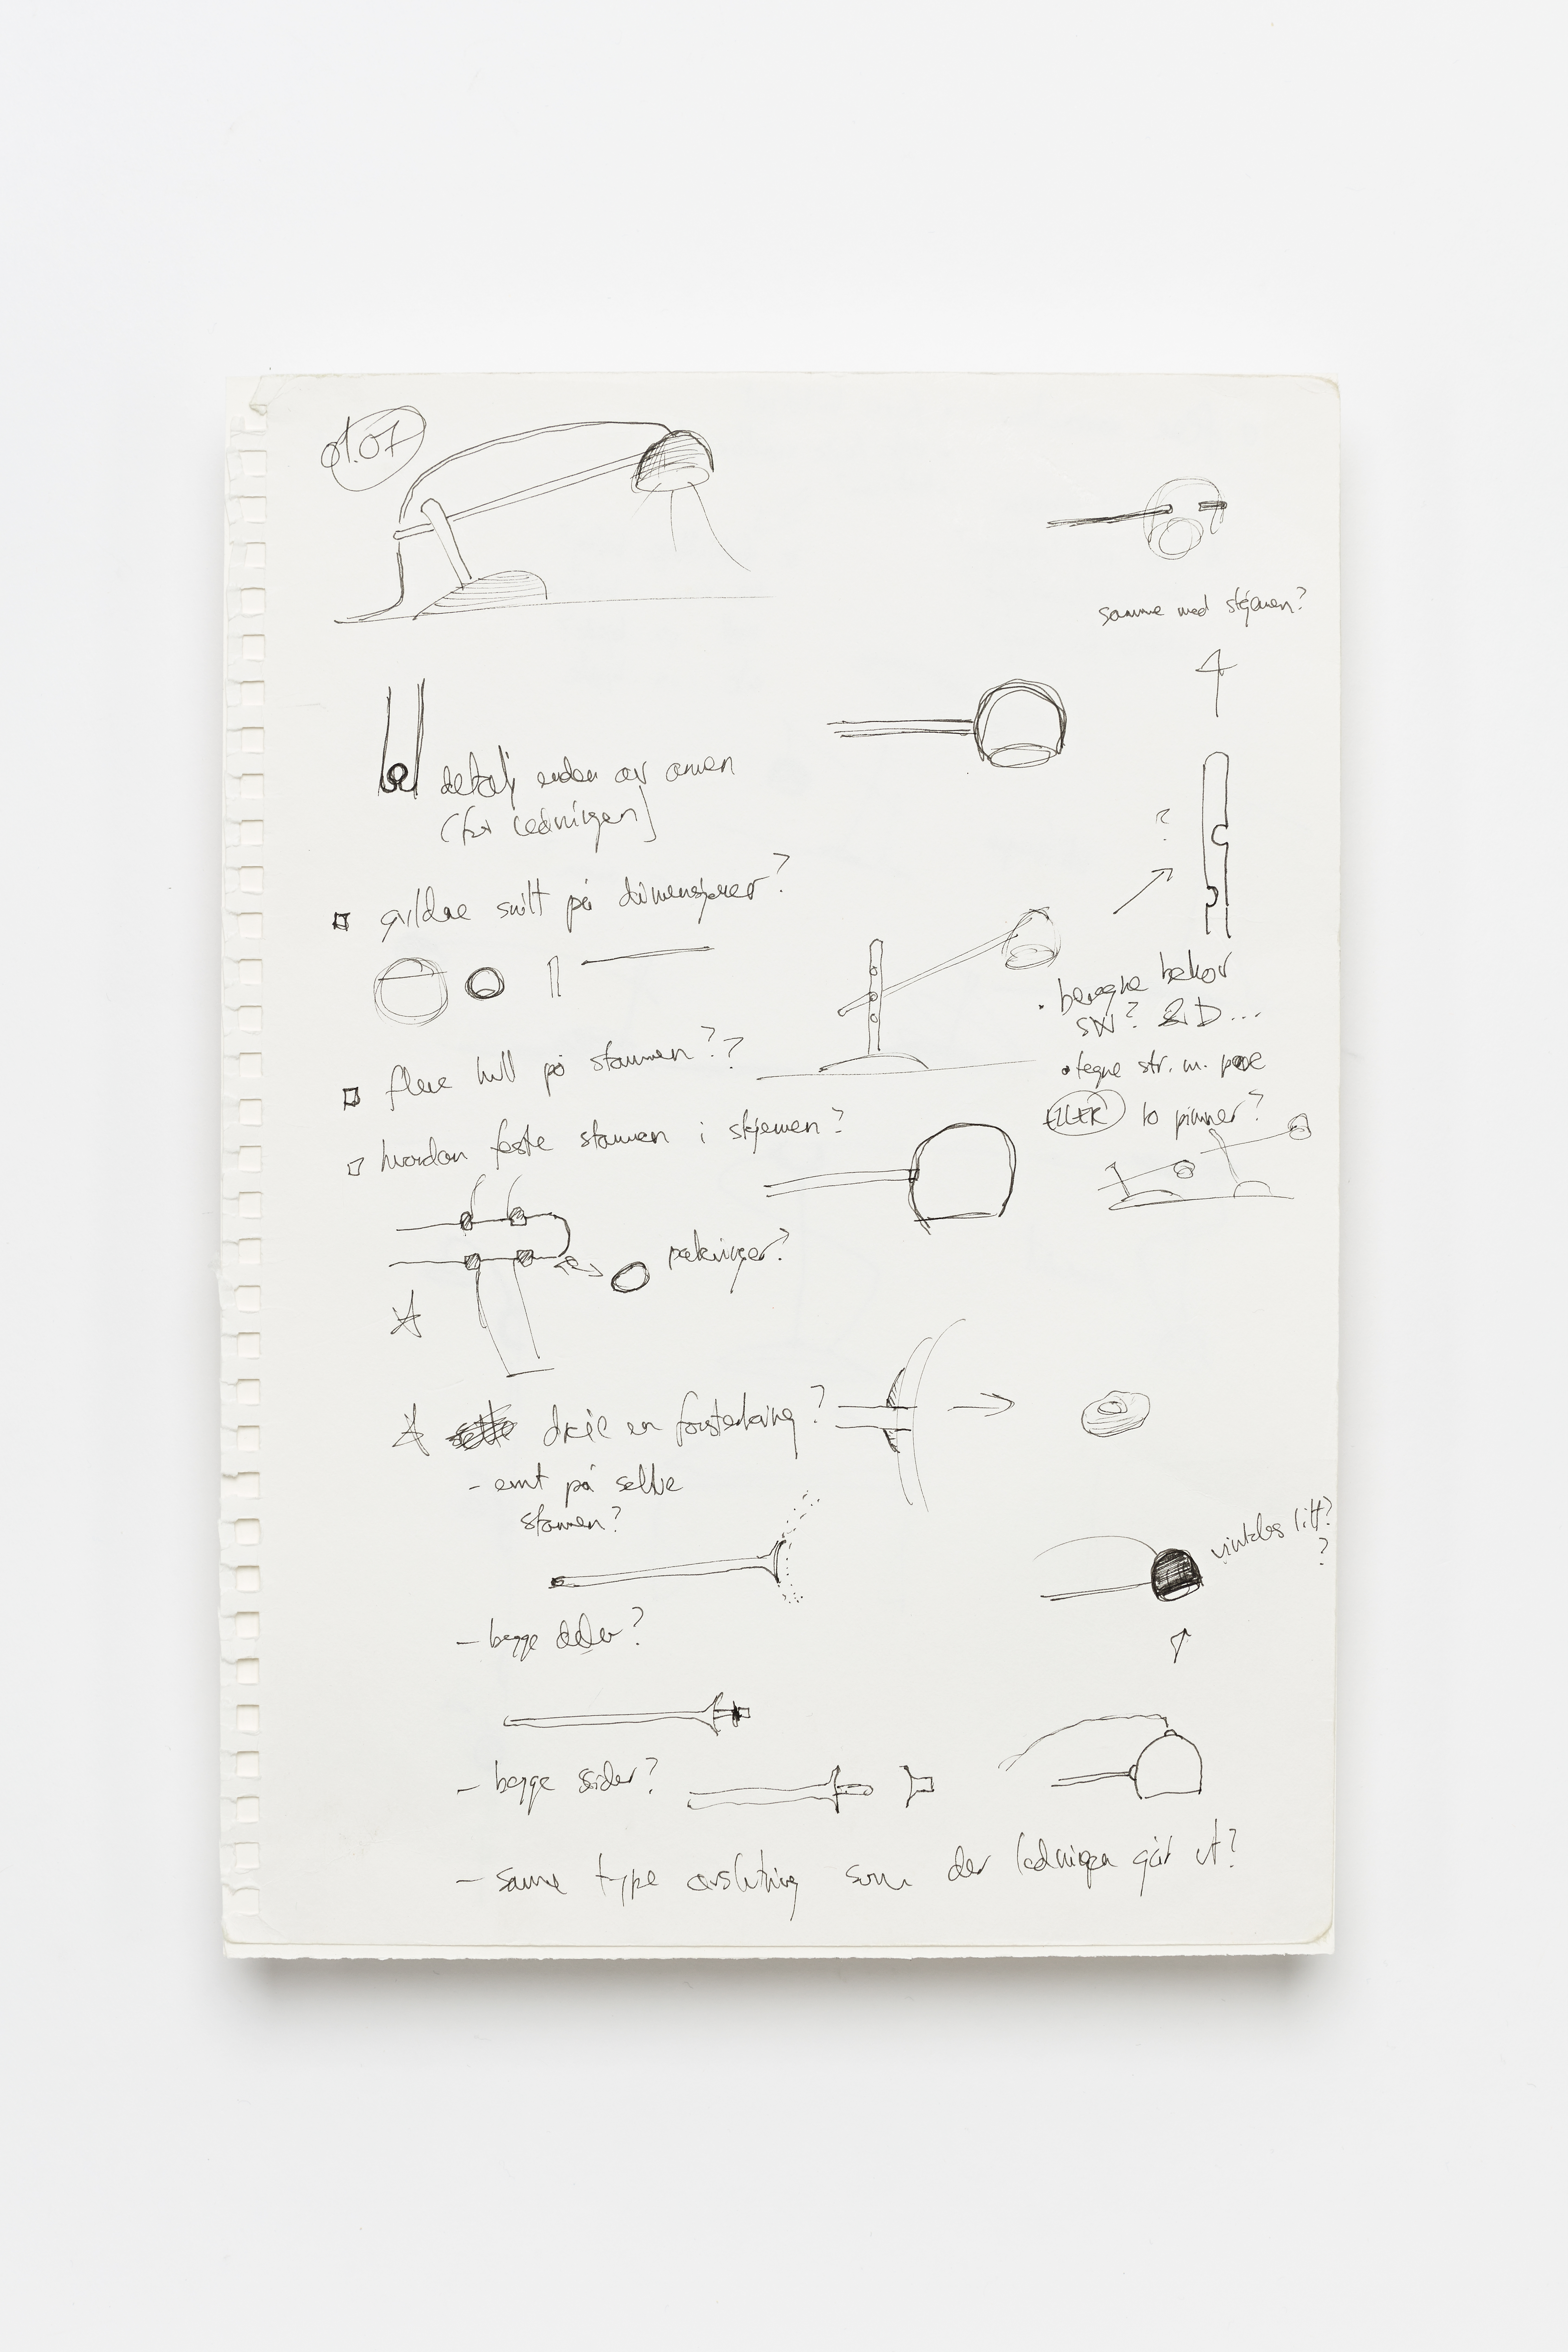 01.07
samme med skjermen?
detalj enden av armen
(for ledningen)
gyldne snitt på dimensjoner?
?
beregne
SW? 3D...
flere hull på stammen??
tegne str. m.
ELLER to pinner?
hvordan feste stammen i skjermen?
pakninger?
dreie en forsterkning?
- emt på selve
stammen?
vinkles litt?
?
- begge deler?
- begge sider?
- samme type avslutning som der ledningen går ut?